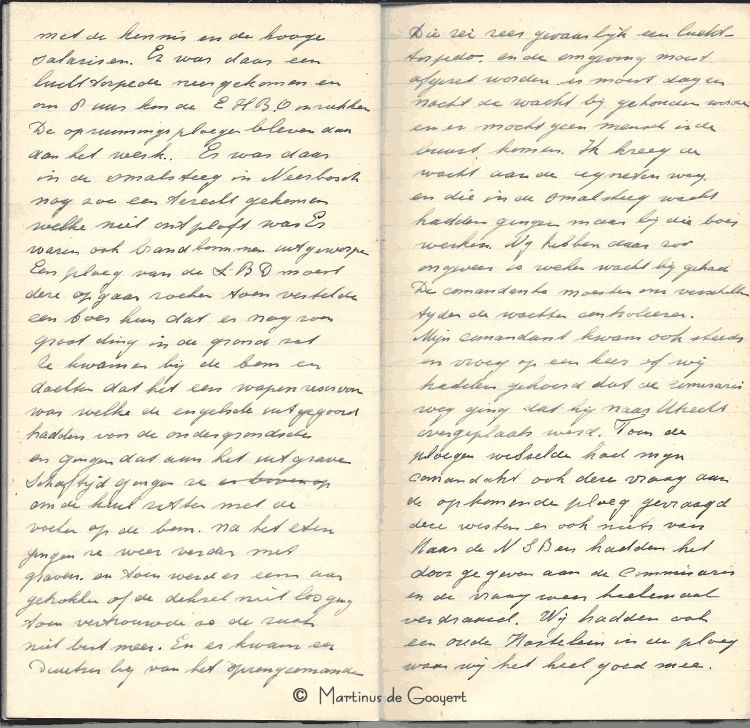 met de kennis en de hooge
salarissen. Er was daar een
lucht torpedo neergekomen en
om 8 uur kon de E H B O inrukken
De opruimings ploegen bleven daar
aan het werk. Er was daar
in de smalsteeg in Neerbosch
nog zoo een terecht gekomen
welke niet ontploft was Er
waren ook brandbommen uitgeworpen
Een ploeg van de L B D moest
deze op gaan zoeken toen vertelde
een boer hun dat er nog zoon
groot ding in de grond zat
Ze kwamen bij de bom en
dachten dat het een wapen reservoir
was welke de engelsche uitgegooid
hadden voor de ondergrondsche
en gingen dat aan het uitgraven
Schaftijd gingen ze en boven op
om de kuil zitten met de
voeten op de bom. na het eten
gingen ze weer verder met
graven. en toen werd er eens aan
getrokken of de deksel niet los ging
toen vertrouwde ze de zaak
niet best meer. En er kwam een
Duitser bij van het sprengcomando
Die zei zees gevaarlijk een lucht-
torpedo. en de omgeving moest
afgezet worden. er moest dag en
nacht de wacht bij gehouden worden
en er mocht geen mensch in de
buurt komen. Ik kreeg de
wacht aan de weg
en die in de smalsteeg wacht
hadden gingen maar bij die boer
werken. Wij hebben daar zoo
ongeveer 10 weken wacht bij gehad
De comandante moesten ons verschillende
tijden de wachten controleeren.
Mijn comandant kwam ook steeds
en vroeg op een keer of wij
hadden gehoord dat de Comisaris
weg ging dat hij naar Utrecht
overgeplaats werd. Toen de
ploegen wisselde had mijn
comandant ook deze vraag aan
de opkomende ploeg gevraagd
deze wisten er ook niets van
Maar de N S Bers hadden het
door ge geven aan de Commisaris
en de vraag weer heelemaal
verdraaid. Wij hadden ook
een oude Kastelein in de ploeg
waar wij het heel goed mee.
© Martinus de Gooyert